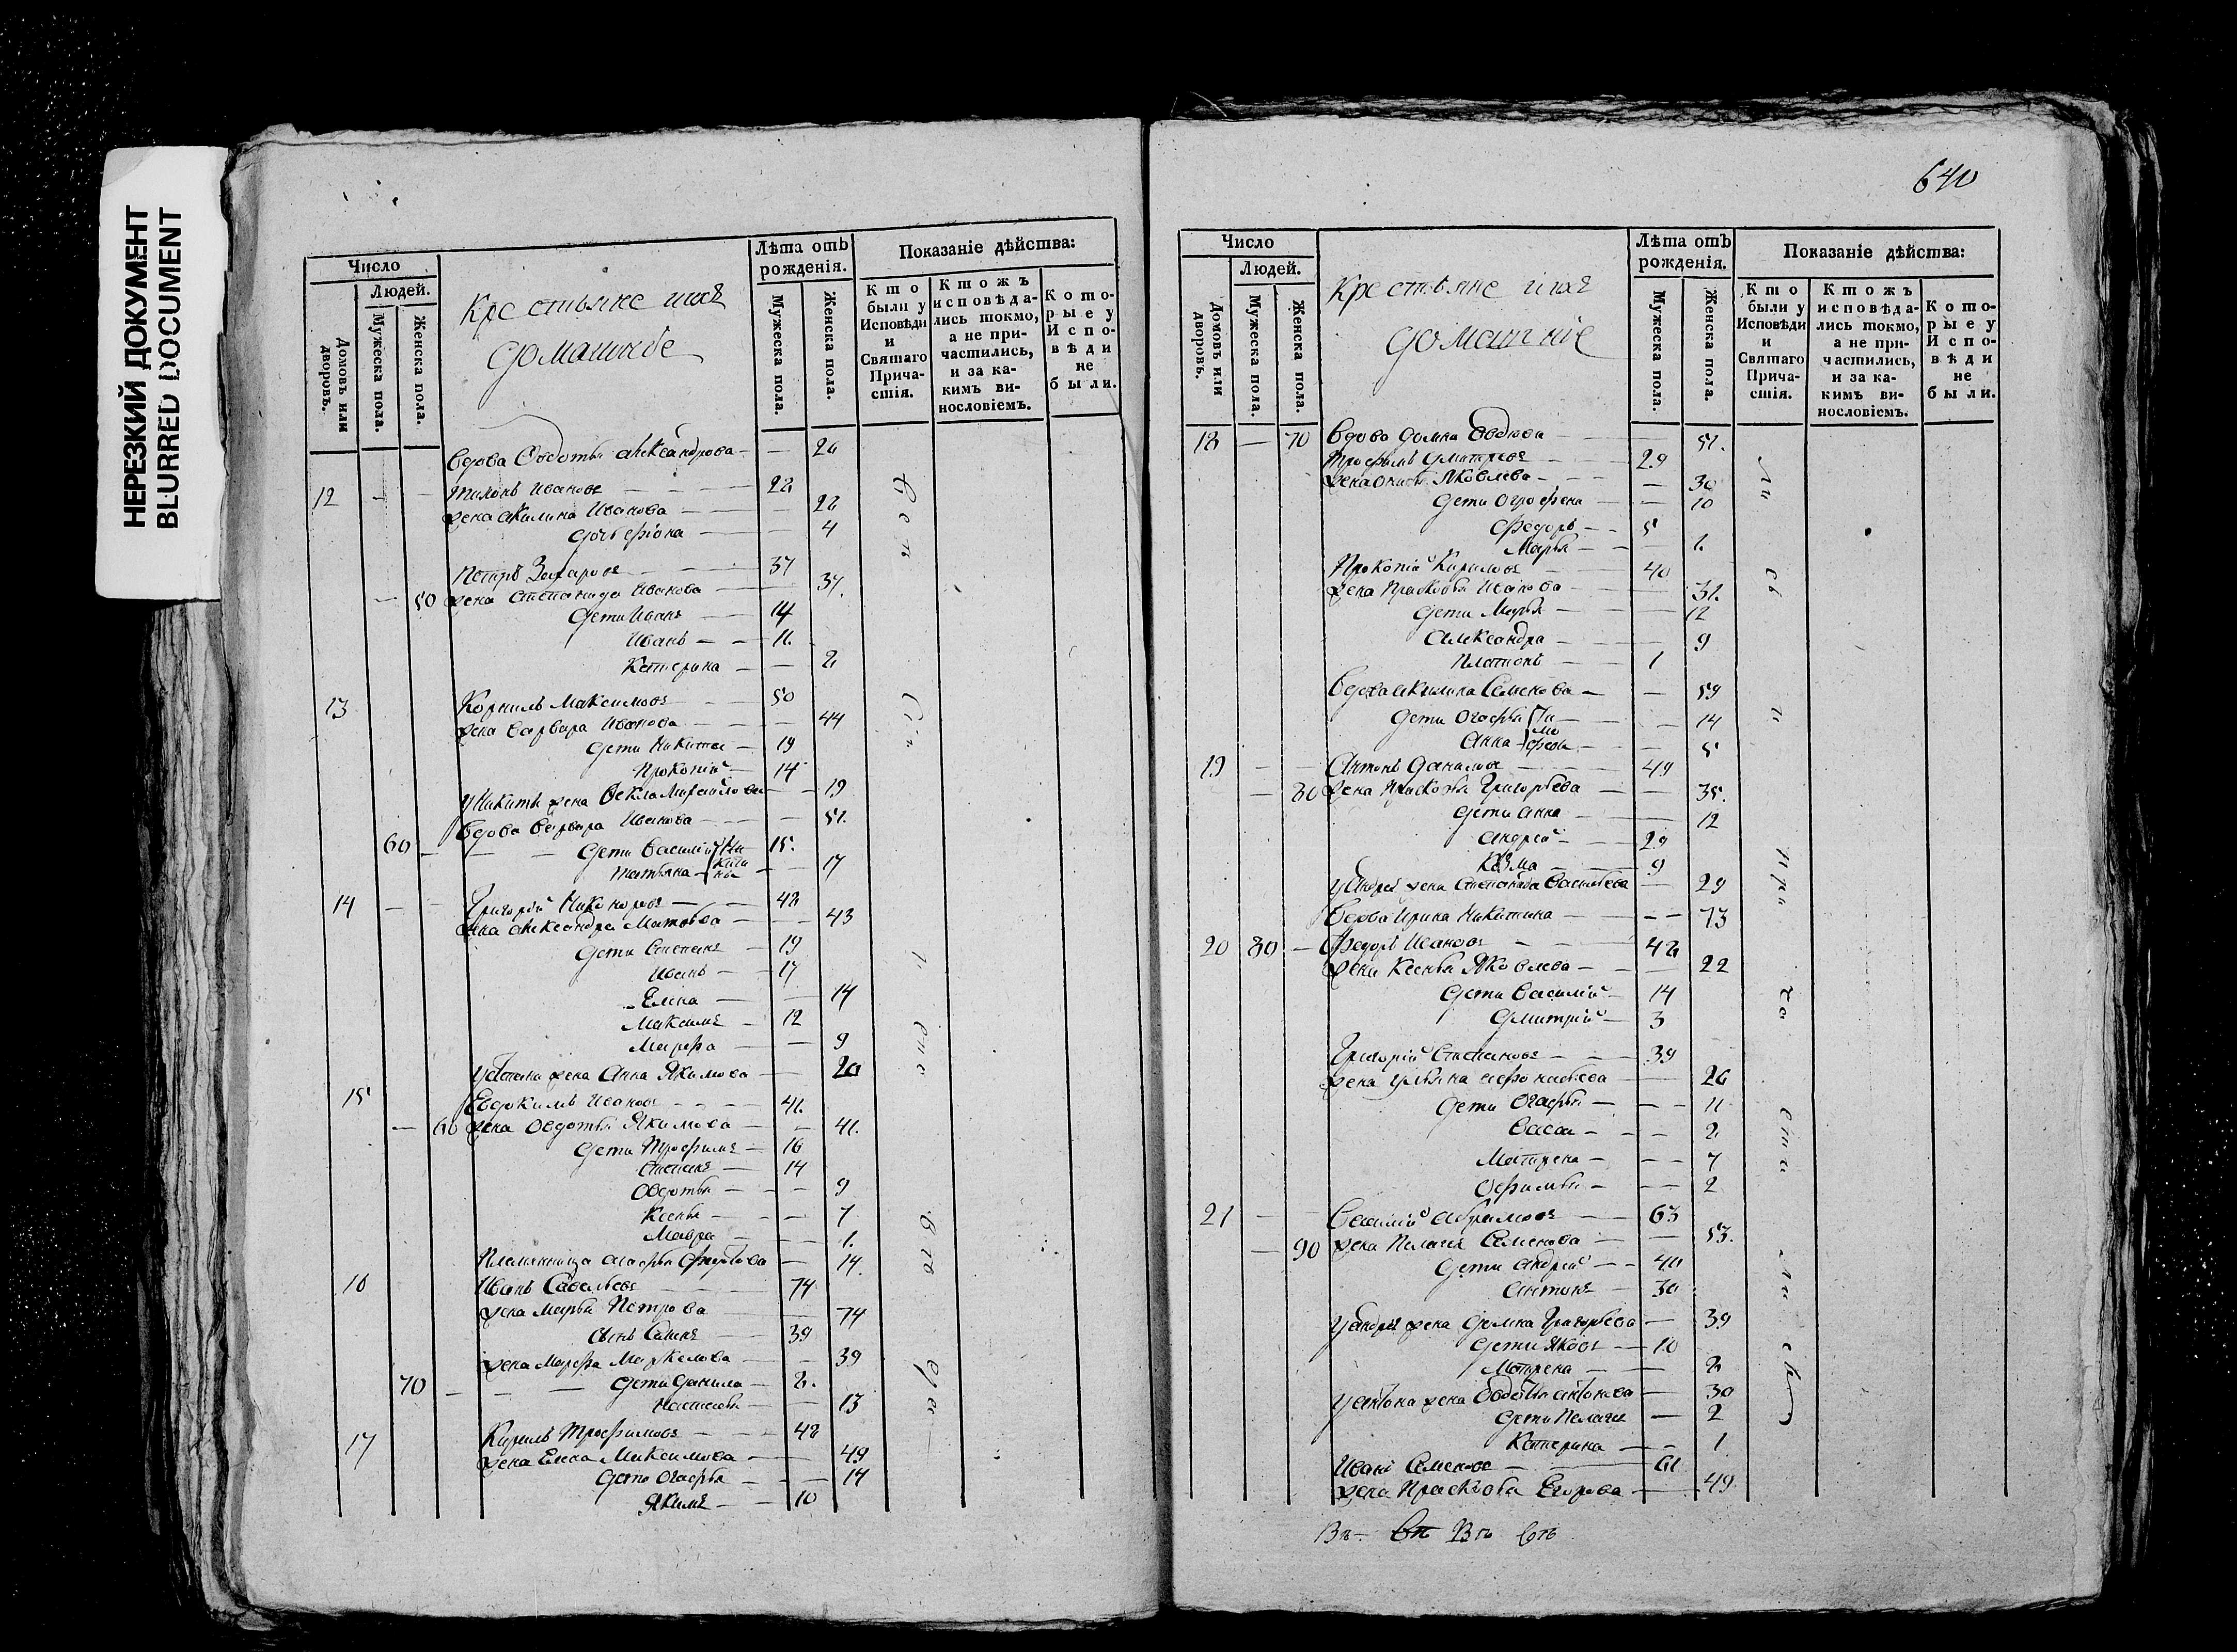 НЕРЕЗКИЙ ДОКУМЕНТ
BLURRED DOCUMENT
Число
Людей.
Домовъ или дворовъ.
Мужеска пола.
Женска пола.
Крестьяне ихъ
домашніе
Лѣта отъ рожденія.
Мужеска пола.
Женска пола.
Показаніе дѣйства:
Кто были у Исповѣди и Святаго Причастія.
Ктожъ исповѣдались токмо, а не причастились, и за какимъ винословіемъ.
Которые у Исповѣди не были.
Вдова Овдотья Александрова — 26
12 — Тихонъ Ивановъ 22
жена Акилина Иванова 22
дочь 4
Петръ Захаровъ 37
— 50 жена Степанида Иванова 37.
дети Иванъ 14
Иванъ — 11.
Катерина — 2
13 Корнилъ Максимовъ 50
жена Варвара Иванова 44
дети Никита — 19
Прокопій 14
у Никиты жена Фекла 19
Вдова Варвара Иванова 51.
60 — дети Василій 15.
Татьяна 17
14 Григорій Никоноровъ 48
жена Александра 43
дети Степанъ — 19
Иванъ — 17
Елена — 14
Максимъ — 12
Марфа — 9
жена Анна Якимова — 20
15 Евдокимъ Ивановъ 41.
— 60 жена Овдотья Якимова — 41.
дети Трофимъ — 16
Степанъ — 14
Овдотья — 9
Ксенья — 7
Мавра — 1.
Племянница Агафья 14.
16 Иванъ Савельевъ 74
жена Марья Петрова 74
сынъ 39
жена Марфа Маркелова 39
70 — дети Данила — 2.
Настасья 13
17 Кирилъ Трофимовъ 48
жена Елена Максимова 49
дети Огафья 14
Якимъ — 10
640
Число
Людей.
Домовъ или дворовъ.
Мужеска пола.
Женска пола.
Крестьяне ихъ
домашніе
Лѣта отъ рожденія.
Мужеска пола.
Женска пола.
Показаніе дѣйства:
Кто были у Исповѣди и Святаго Причастія.
Ктожъ исповѣдались токмо, а не причастились, и за какимъ винословіемъ.
Которые у Исповѣди не были.
18 — 70 Вдова Домна 51.
Трофимъ 29
жена Яковлева 30
дети Огрофена 10
Федоръ 5
Марья 1.
Прокопій Кириловъ 40
жена Прасковья Иванова 31.
дети Марья 12
Александра 9
Платонъ 1
Вдова Акилина Семенова — 59
дети Огафья 14
Анна 5
19 Антонъ Даниловъ 49
— 80 жена Прасковья Григорьева 35.
дети Анна 12
Андрей 29
9
у Андрея жена Степанида Васильева 29
Вдова Ирина Никитина 73
20 80 — Федоръ Ивановъ 42
жена Ксенья Яковлева 22
дети Василій 14
Дмитрій 3
Григорій Степановъ 39
жена Ульяна 26
дети Огафья 11
Васса 2
Матрена 7
Офимья 2
21 Василій Абрамовъ 63
— 90 жена Пелагея Семенова 53.
дети Андрей 40
Антонъ 30
у Андрея жена Домна Григорьева 39
дети Яковъ 10
Матрена 2
у Антона жена Овдотья Антонова 30
дети Пелагея — 2
Катерина 1
Иванъ Семеновъ 61
жена Прасковья Егорова 49